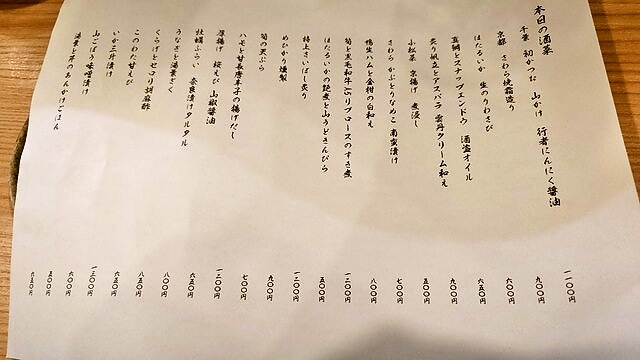 本日の酒菜
千葉 初がつお 山かけ 行者にんにく醤油
京都 さわら焼霜造り
ほたるいか 生のりわさび
真鯛とスナップエンドウ 酒盗オイル
炙り帆立とアスパラ 雲丹クリーム和え
小松菜 京揚げ 煮浸し
さわら かぶとりなめこ 南蛮漬け
鴨生ハムと金柑の白和え
筍と黒毛和牛A5リブロースのすき煮
ほたるいかの艶煮と山うどきんぴら
特上さいぼし炙り
めひかり燻製
筍の天ぷら
ハモと甘長唐辛子の揚げだし
厚揚げ 桜えび 山椒醤油
牡蠣ふらい 奈良漬けタルタル
うなぎと湯葉ざく
くらげとセロリ胡麻酢
このわた甘えび
いか三升漬け
山ごぼう味噌漬け
湯葉と芹のあんかけごはん
一一〇〇円
九〇〇円
六〇〇円
六五〇円
九〇〇円
五〇〇円
七〇〇円
八〇〇円
一二〇〇円
五〇〇円
一二〇〇円
九〇〇円
七〇〇円
一二〇〇円
六五〇円
八〇〇円
八五〇円
六五〇円
一三〇〇円
六〇〇円
五〇〇円
六五〇円